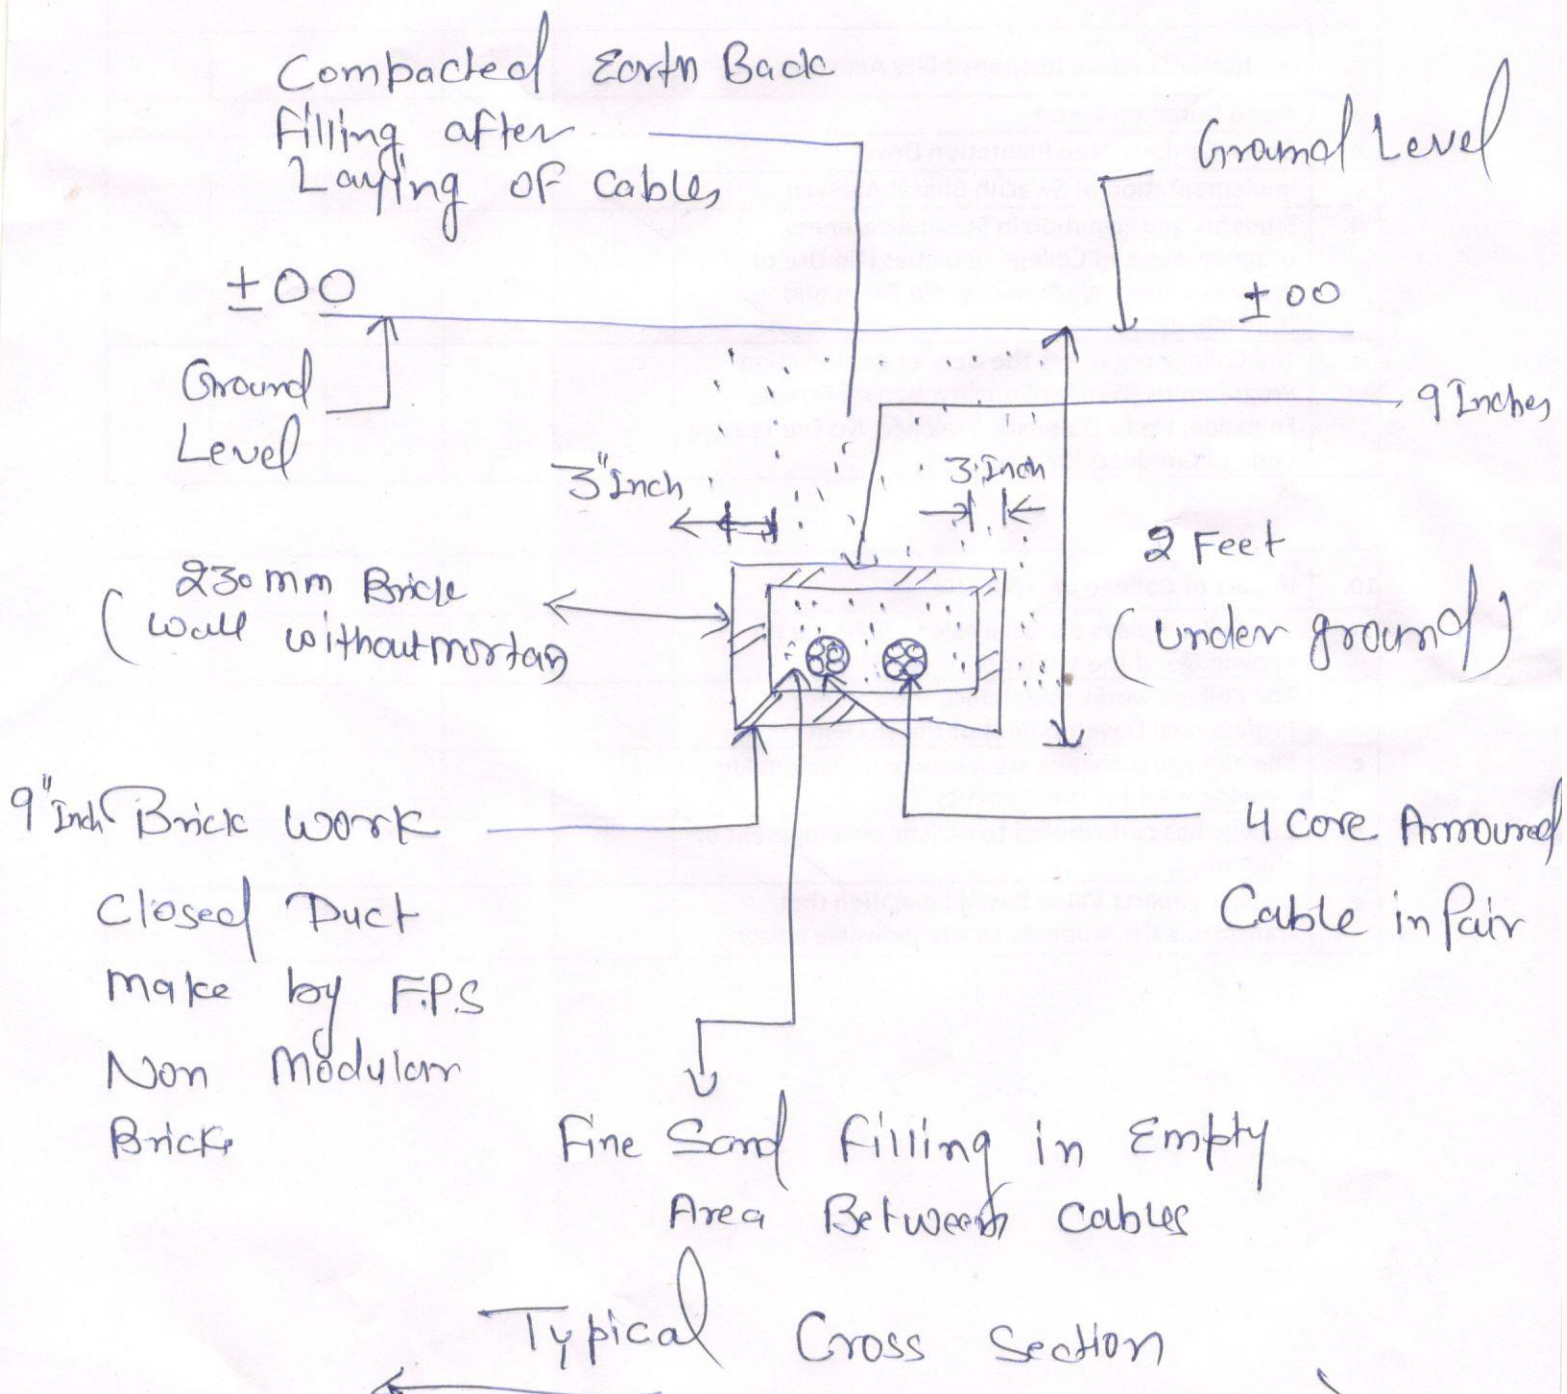 Compacted Earth Back
Filling after
Laying of Cables
Ground Level
±00
±00
Ground
Level
9 Inches
3" Inch
3 Inch
2 Feet
(under ground)
230 mm Brick
(wall without mortar)
9" Inch Brick work
Closed Duct
Make by F.P.S
Non Modular
Bricks
4 Core Armoured
Cable in Pair
Fine Sand Filling in Empty
Area Between Cables
Typical Cross Section